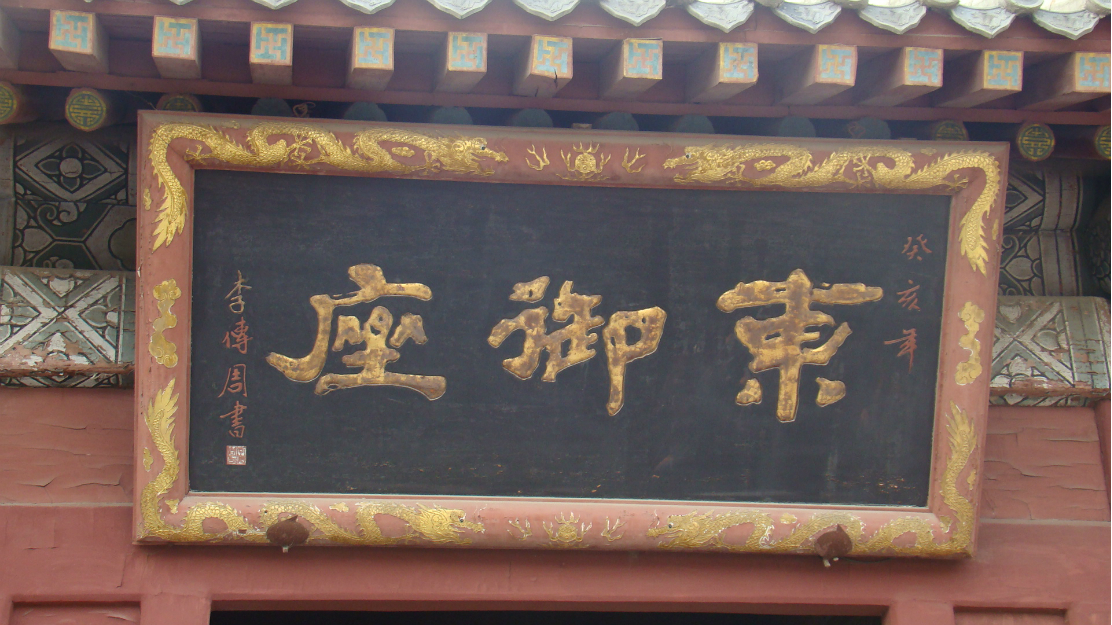 癸亥年
東御座
李傳周書